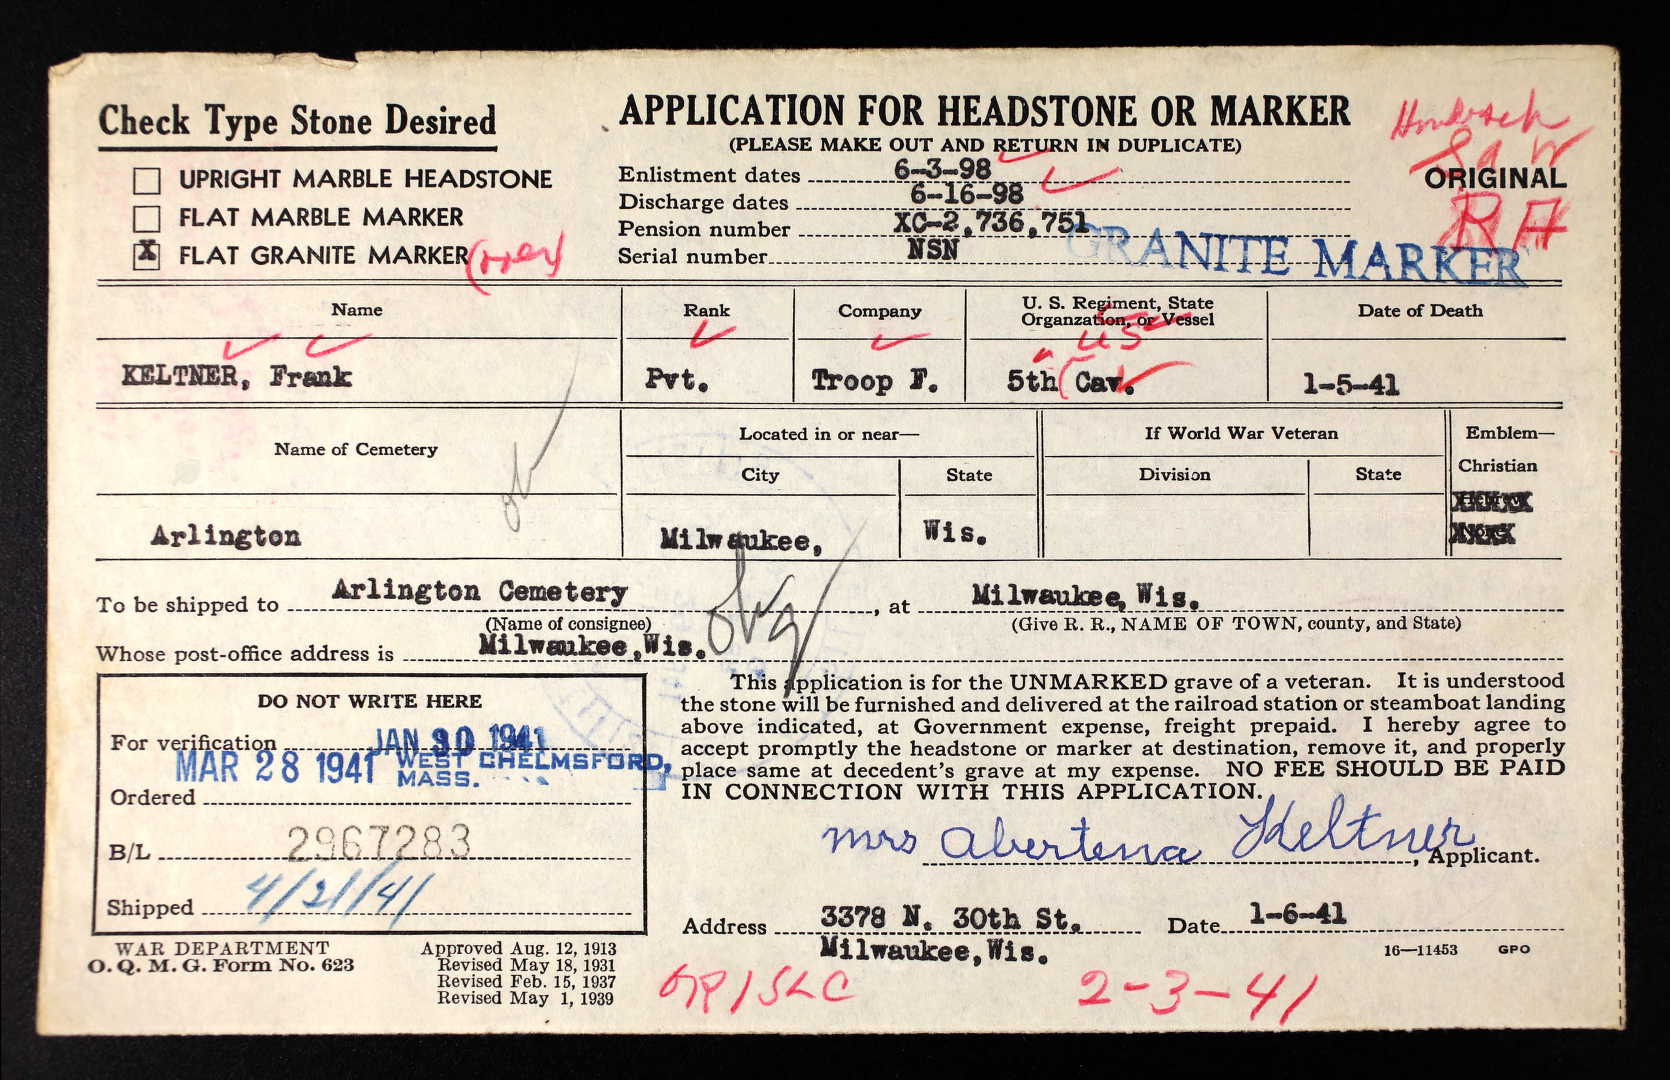 Check Type Stone Desired
UPRIGHT MARBLE HEADSTONE
FLAT MARBLE MARKER
X FLAT GRANITE MARKER
APPLICATION FOR HEADSTONE OR MARKER
(PLEASE MAKE OUT AND RETURN IN DUPLICATE)
Enlistment dates 6-3-98
Discharge dates 6-16-98
Pension number XC-2,736,751
Serial number NSN
ORIGINAL
RA
GRANITE MARKER
Name Rank Company U. S. Regiment, State Organzation, or Vessel Date of Death
US
KELTNER, Frank Pvt. Troop F. 5th Cav. 1-5-41
Name of Cemetery Located in or near— If World War Veteran Emblem—
City State Division State Christian
Arlington Milwaukee, Wis.
To be shipped to Arlington Cemetery, at Milwaukee, Wis.
(Name of consignee) (Give R. R., NAME OF TOWN, county, and State)
Whose post-office address is Milwaukee, Wis.
DO NOT WRITE HERE
For verification JAN 30 1941
MAR 28 1941 WEST CHELMSFORD, MASS.
Ordered
B/L 2967283
Shipped 4/21/41
WAR DEPARTMENT
O. Q. M. G. Form No. 623
Approved Aug. 12, 1913
Revised May 18, 1931
Revised Feb. 15, 1937
Revised May 1, 1939
This application is for the UNMARKED grave of a veteran. It is understood
the stone will be furnished and delivered at the railroad station or steamboat landing
above indicated, at Government expense, freight prepaid. I hereby agree to
accept promptly the headstone or marker at destination, remove it, and properly
place same at decedent's grave at my expense. NO FEE SHOULD BE PAID
IN CONNECTION WITH THIS APPLICATION.
Mrs Abertena Keltner, Applicant.
Address 3378 N. 30th St. Date 1-6-41
Milwaukee, Wis.
16—11453 GPO
2-3-41